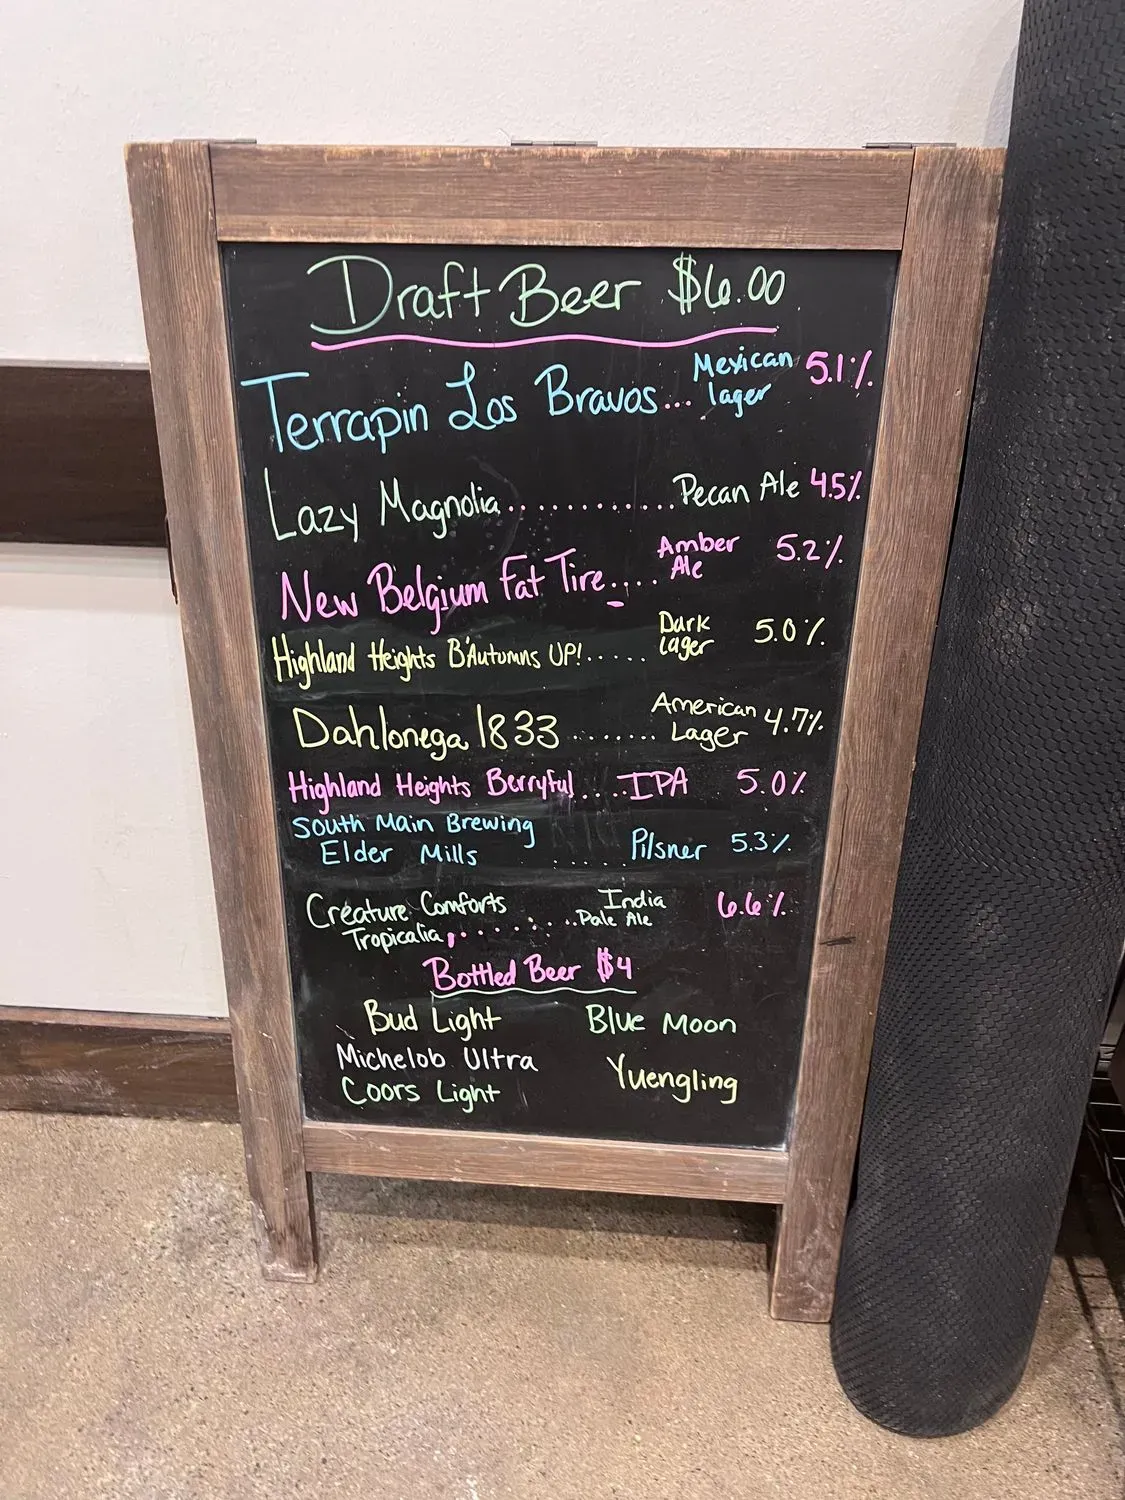 Draft Beer $6.00
Terrapin Los Bravos... Mexican lager 5.1%
Lazy Magnolia............ Pecan Ale 4.5%
New Belgium Fat Tire..... Amber Ale 5.2%
Highland Heights B'Autumns UP!..... Dark Lager 5.0%
Dahlonega 1833........ American Lager 4.7%
Highland Heights Berryful....IPA 5.0%
South Main Brewing
Elder Mills ...... Pilsner 5.3%
Creature Comforts India
Tropicalia........ Pale Ale 6.6%
Bottled Beer $4
Bud Light Blue Moon
Michelob Ultra
Coors Light Yuengling